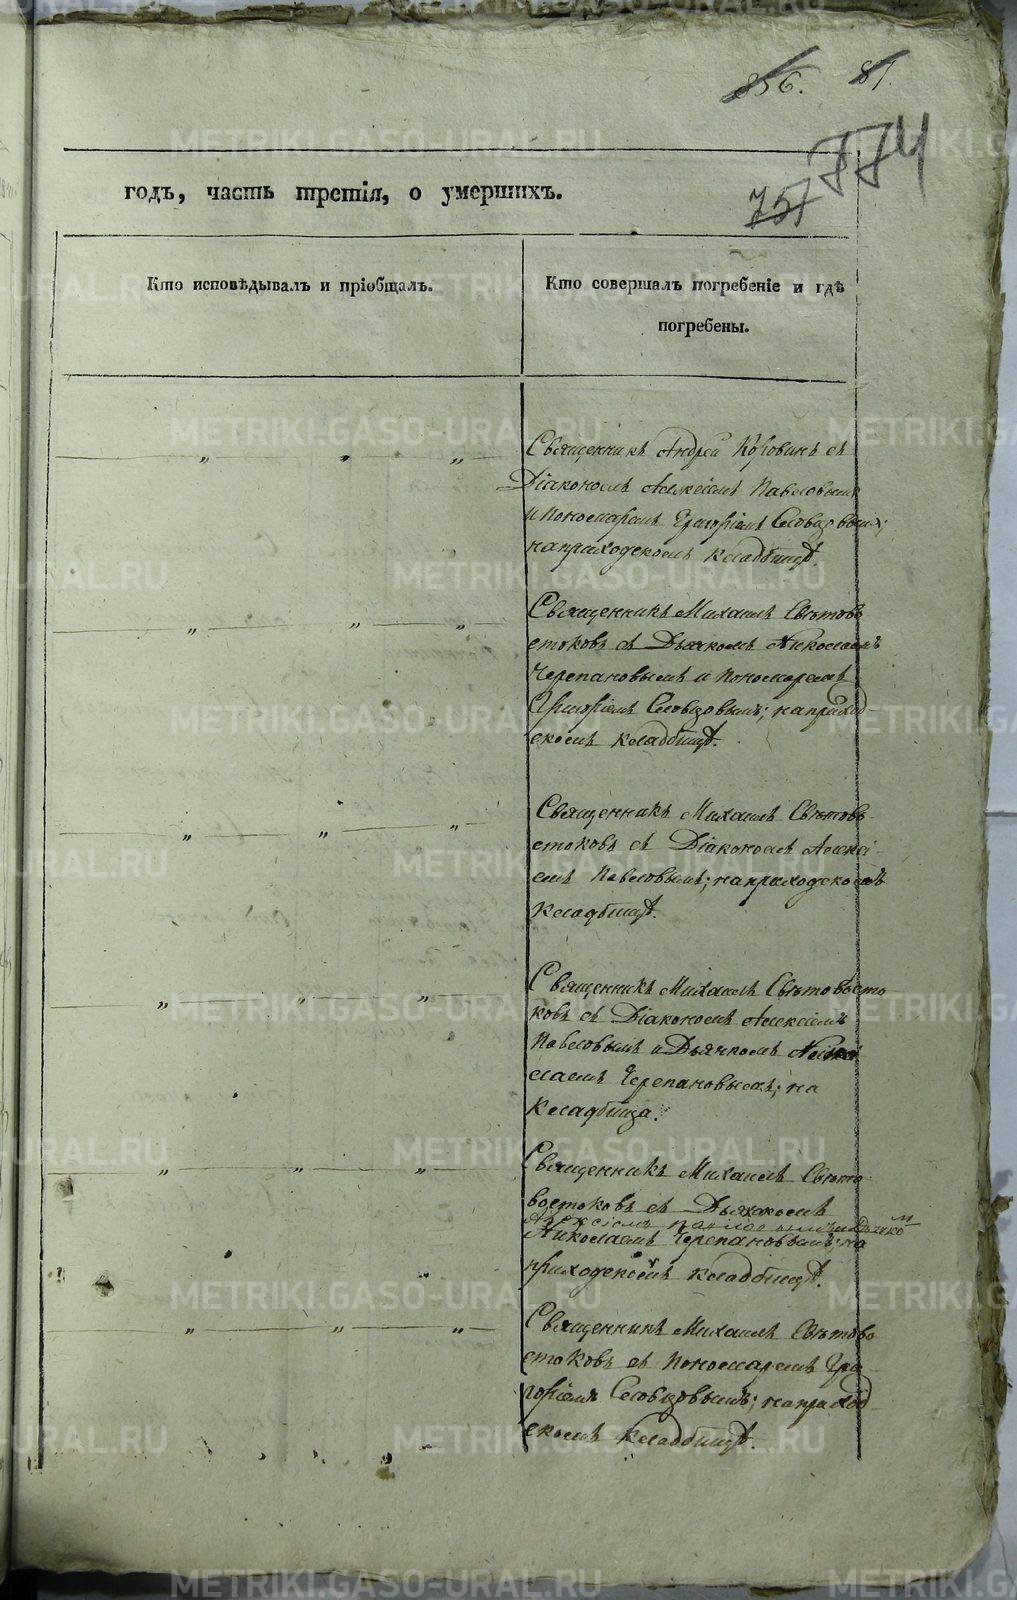 856. 87.
774
757
годъ, часть третія, о умершихъ.
Кто исповѣдывалъ и пріобщалъ.
Кто совершалъ погребеніе и гдѣ
погребены.
Священникъ Андрей Коровинъ съ
Діакономъ Алексіемъ Павловымъ
и Пономаремъ Григоріемъ Словцовымъ;
на приходскомъ кладбищѣ.
Священникъ Михаилъ Свѣтово
стоковъ съ Дьячкомъ Николаемъ
Черепановымъ и Пономаремъ
Григоріемъ Словцовымъ; на приход-
скомъ кладбищѣ.
Священникъ Михаилъ Свѣтово
стоковъ съ Діакономъ Алексі-
емъ Павловымъ; на приходскомъ
кладбищѣ.
Священникъ Михаилъ Свѣтовосто
ковъ съ Діакономъ Алексіемъ
Павловымъ и Дьячкомъ Нико
лаемъ Черепановымъ; на
кладбища.
Священникъ Михаилъ Свѣто
востоковъ съ Дьякономъ
Алексіемъ Павловымъ и Дьячком
Николаемъ Черепановымъ; на
приходскомъ кладбищѣ.
Священникъ Михаилъ Свѣтово
стоковъ съ Пономаремъ Гри-
горіемъ Словцовымъ; на приход
скомъ кладбищѣ.
METRIKI.GASO-URAL.RU